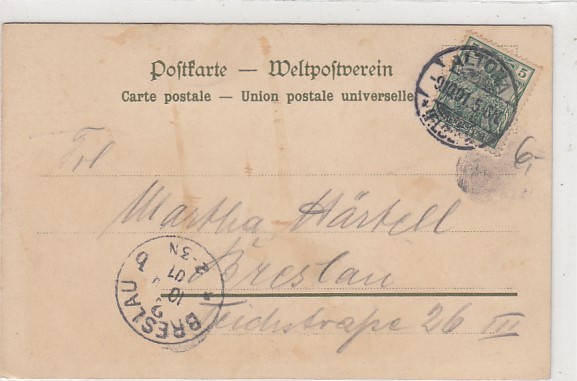 Postkarte — Weltpostverein
Carte postale — Union postale universelle
5
ALTONA
Frl
6,-
Martha Härtell
Breslau
Teichstraße 26 III
BRESLAU
2-3N
10 01